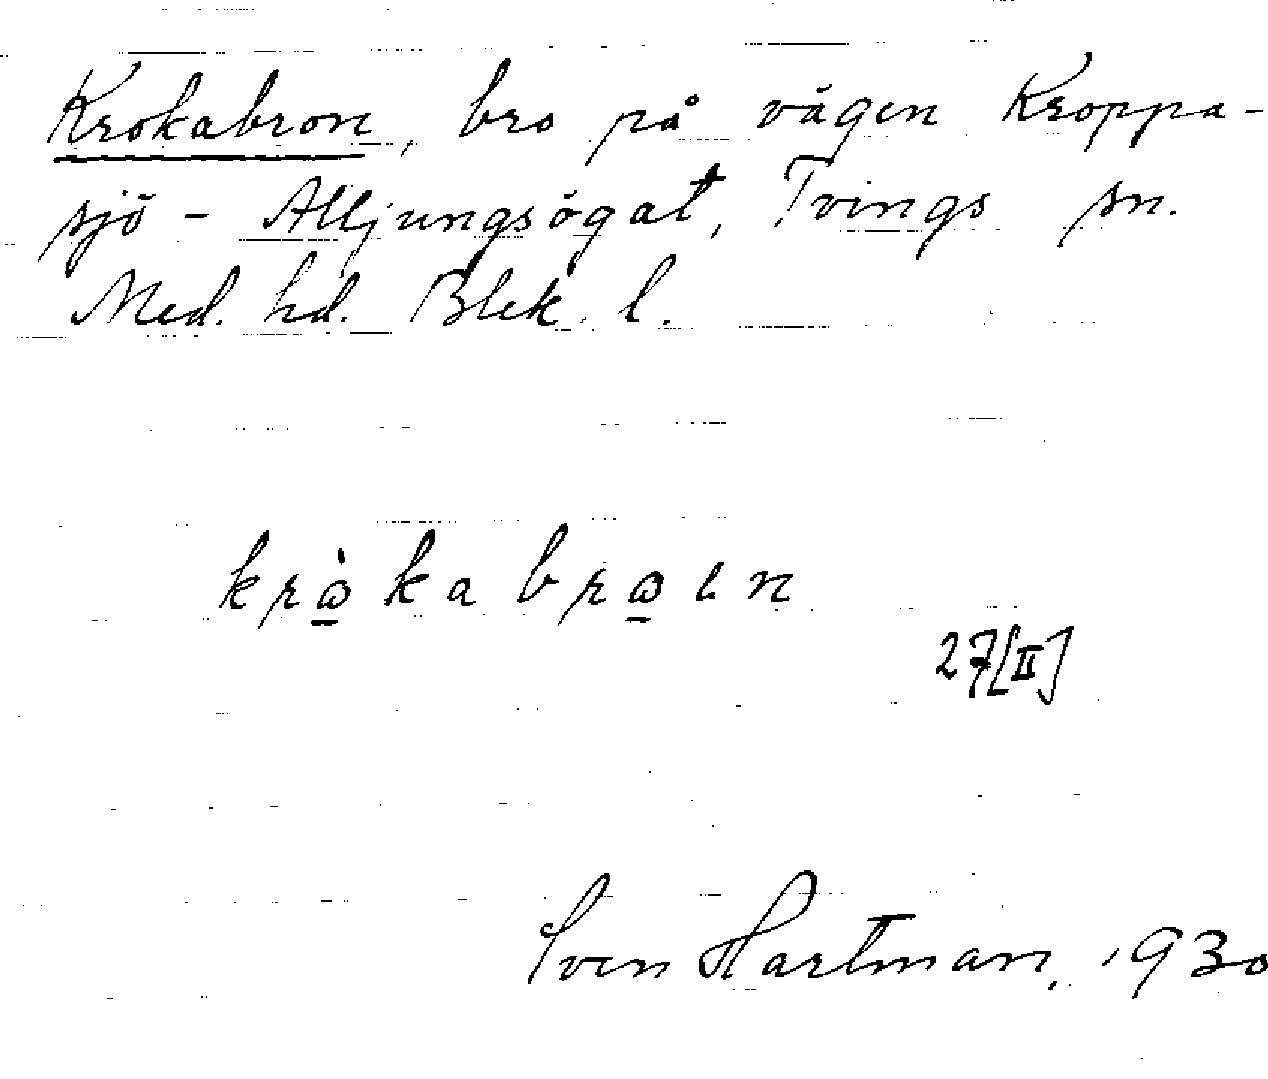 Krokabron, bro på vägen Kroppa-
sjö - Alljungsögat, Tvings sn.
Med. hd. Blek. l.
krɷ̠̀kabrɷ̠ɩn
27[II]
Sven Hartman, 1930